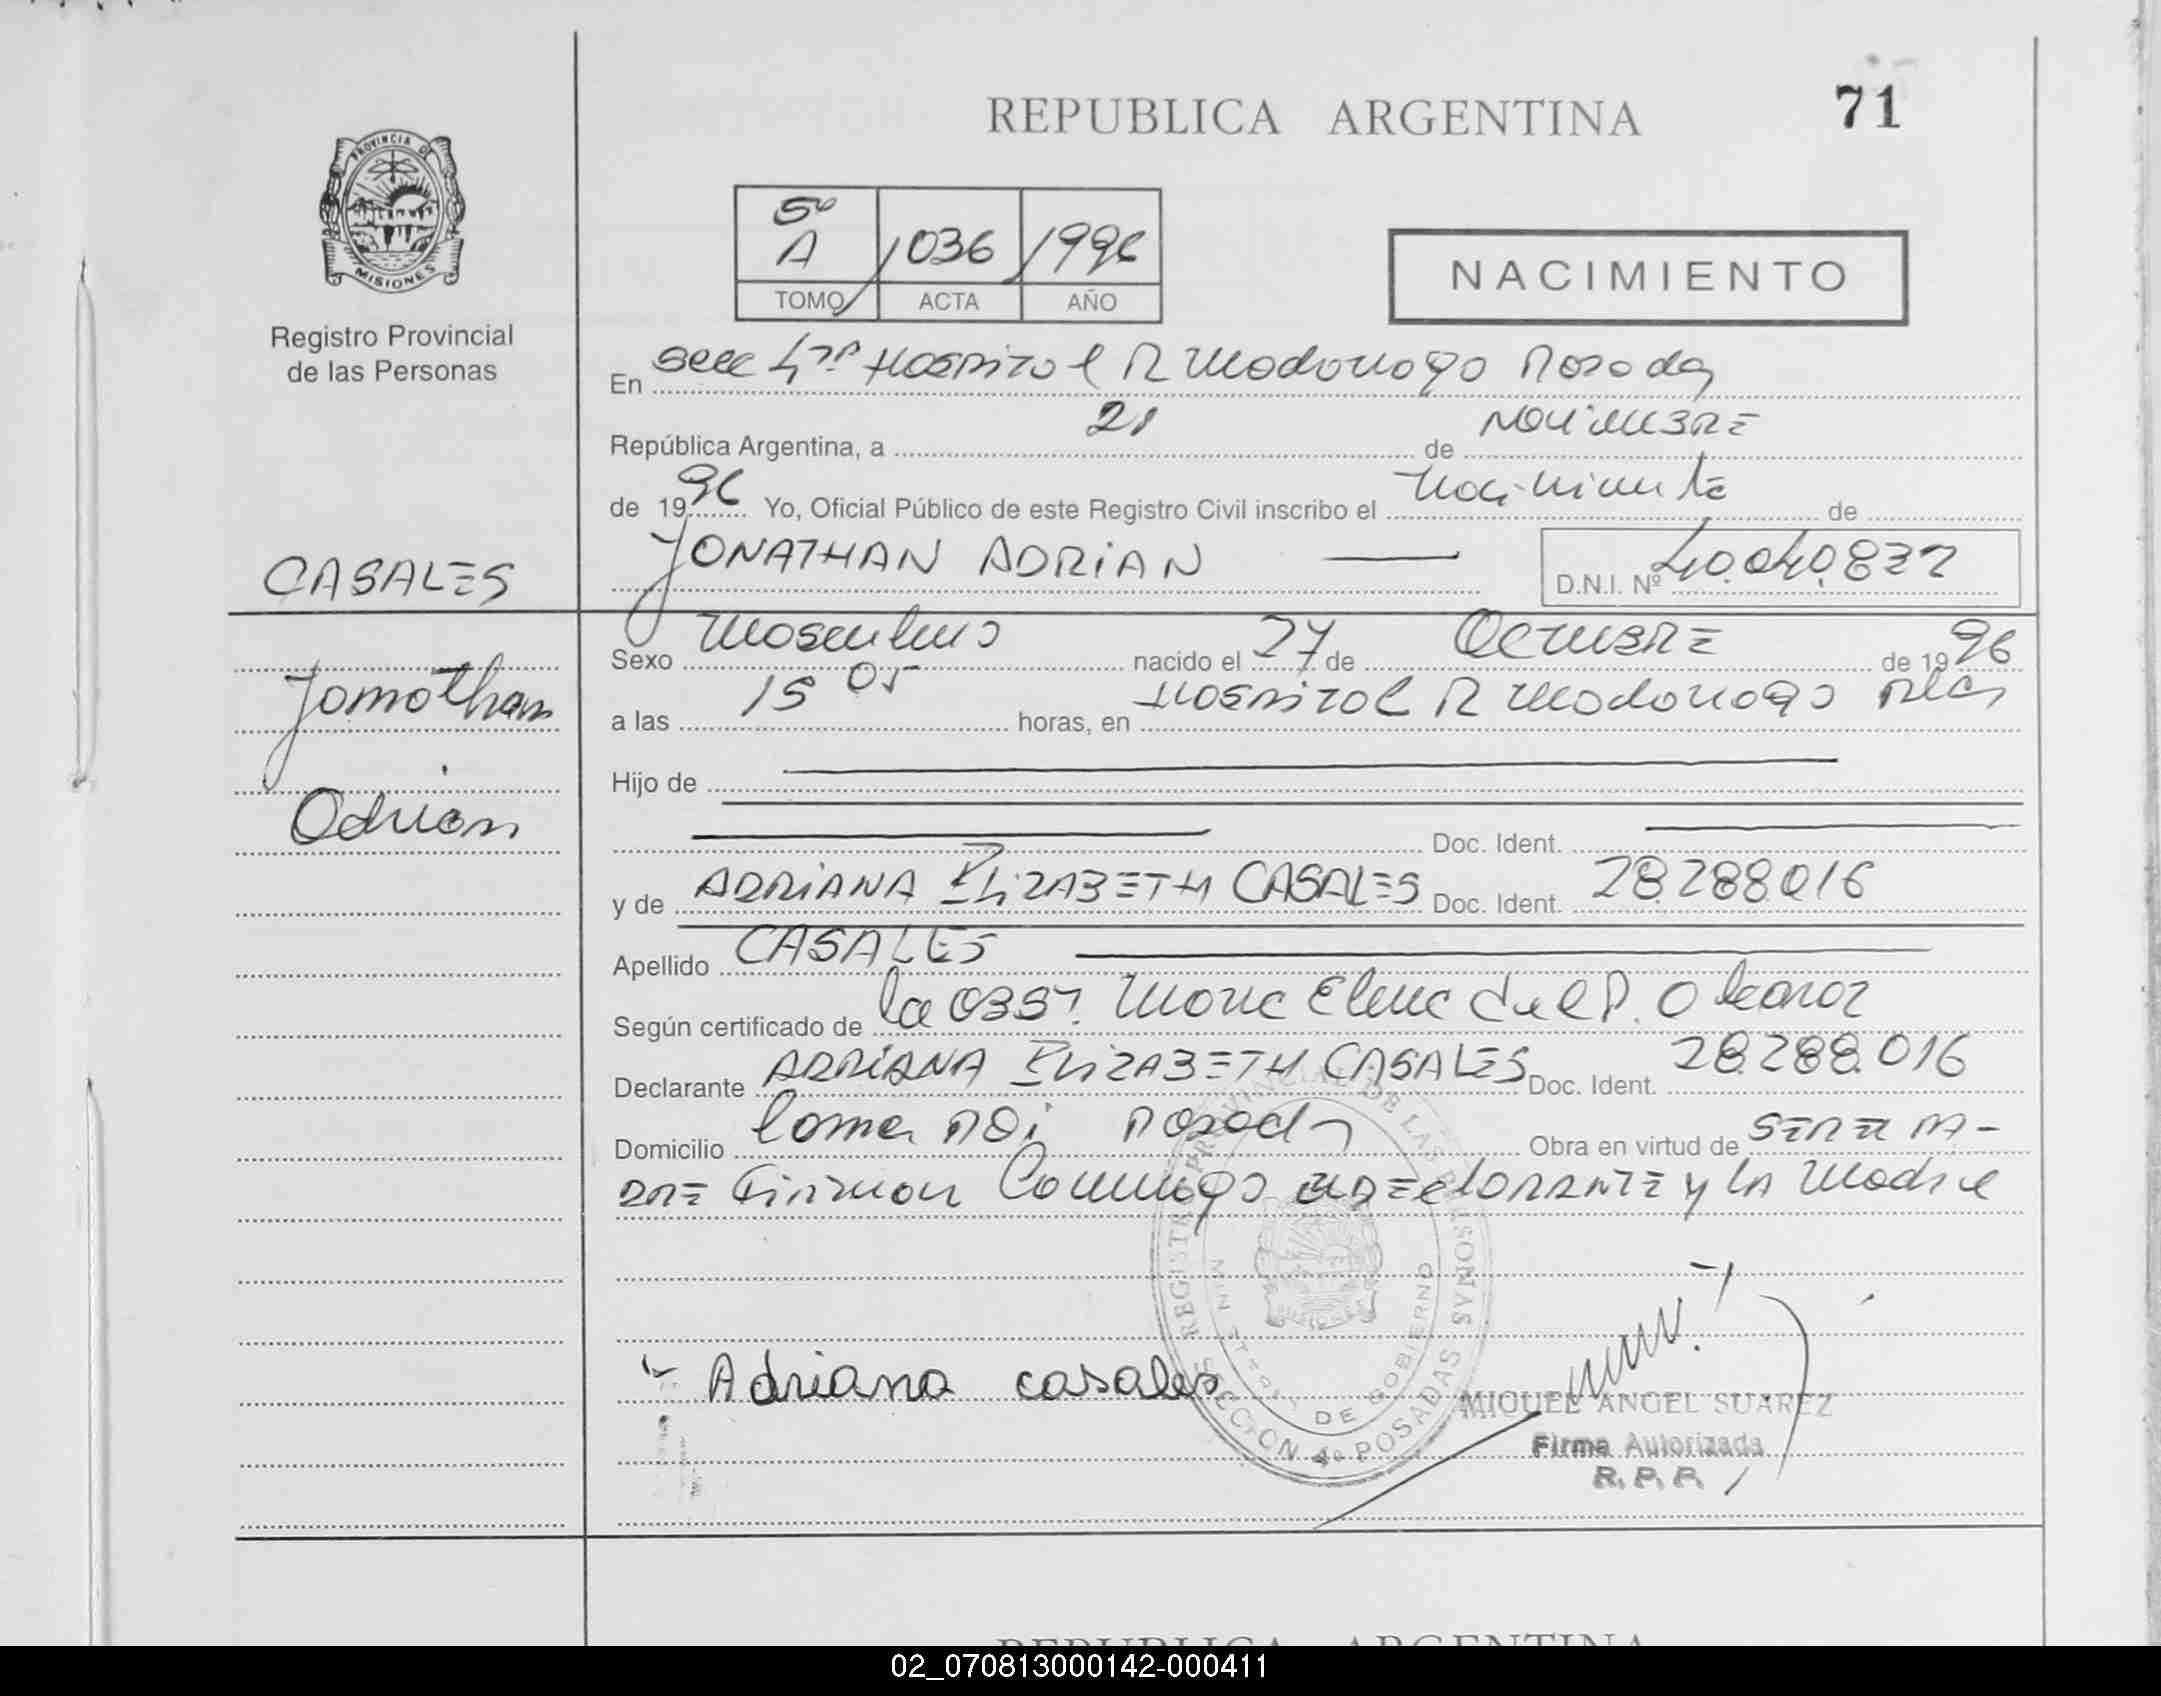 REPUBLICA ARGENTINA 71
PROVINCIA DE MISIONES
Registro Provincial
de las Personas
5º
A 1036 1996
TOMO ACTA AÑO
NACIMIENTO
En Secc 4ª Hospital R Madariaga Posadas
República Argentina, a 21 de NOVIEMBRE
de 1996 Yo, Oficial Público de este Registro Civil inscribo el Nacimiento de
JONATHAN ADRIAN D.N.I. Nº 40.040.832
CASALES
Jonathan
Adrian
Sexo Masculino nacido el 27 de OCTUBRE de 1996
a las 15 05 horas, en Hospital R Madariaga Pdas
Hijo de
Doc. Ident.
y de ADRIANA ELIZABETH CASALES Doc. Ident. 28.288.016
Apellido CASALES
Según certificado de la OBST. Maria Elena del P.
Declarante ADRIANA ELIZABETH CASALES Doc. Ident. 28.288.016
Domicilio Loma POi Posadas Obra en virtud de
Firman Conmigo DECLARANTE y LA Madre
Adriana casales
REGISTRO PROVINCIAL DE LAS PERSONAS
MINISTERIO DE GOBIERNO
SECCION 4º POSADAS
MIGUEL ANGEL SUAREZ
Firma Autorizada
R. P. P.
REPUBLICA ARGENTINA
02_070813000142-000411